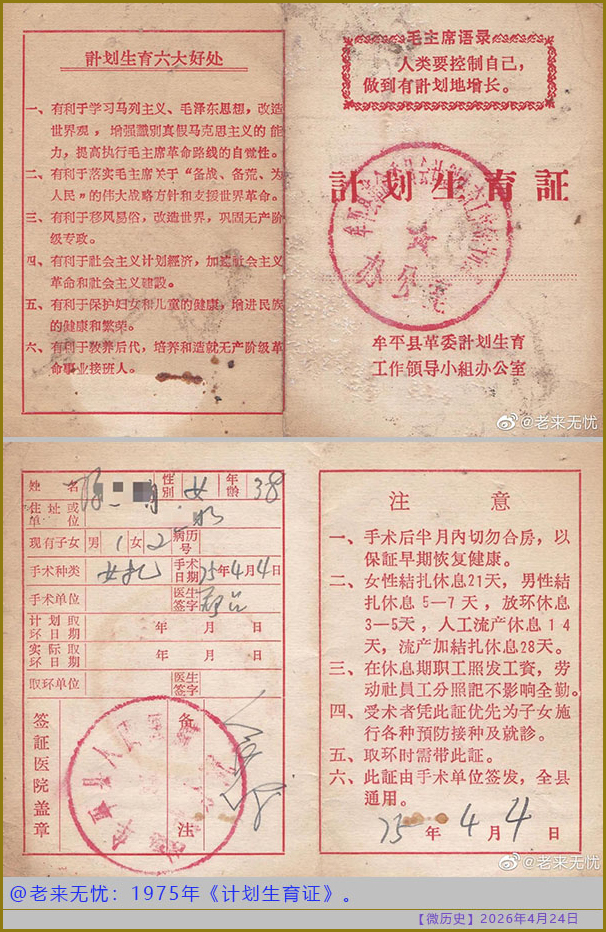 計划生育六大好处
一、有利于学习马列主义、毛泽东思想，改造
世界观，增强識别真假马克思主义的能
力，提高执行毛主席革命路线的自觉性。
二、有利于落实毛主席关于“备战、备荒、为
人民”的伟大战略方针和支援世界革命。
三、有利于移风易俗，改造世界，巩固无产阶
级专政。
四、有利于社会主义計划經济，加速社会主义
革命和社会主义建設。
五、有利于保护妇女和儿童的健康，增进民族
的健康和繁荣。
六、有利于教养后代，培养和造就无产阶级革
命事业接班人。
毛主席语录
人类要控制自己，
做到有計划地增长。
計划生育証
办公室
牟平县革委計划生育
工作领导小組办公室
@老来无忧
姓名 性别 女 年龄 38
住址或
单位
现有子女 男 1 女 2 病历号
手术种类 女扎 手术日期 75年4月4日
手术单位 医生签字
計划取
环日期 年 月 日
实际取
环日期 年 月 日
取环单位 医生签字
签証医院盖章 备注
牟平县人民医院
注意
一、手术后半月内切勿合房，以
保証早期恢复健康。
二、女性結扎休息21天，男性結
扎休息5—7天，放环休息
3—5天，人工流产休息14
天，流产加結扎休息28天。
三、在休息期职工照发工資，劳
动社員工分照記不影响全勤。
四、受术者凭此証优先为子女施
行各种預防接种及就診。
五、取环时需带此証。
六、此証由手术单位签发，全县
通用。
75年4月4日
@老来无忧
@老来无忧：1975年《计划生育证》。
【微历史】2026年4月24日